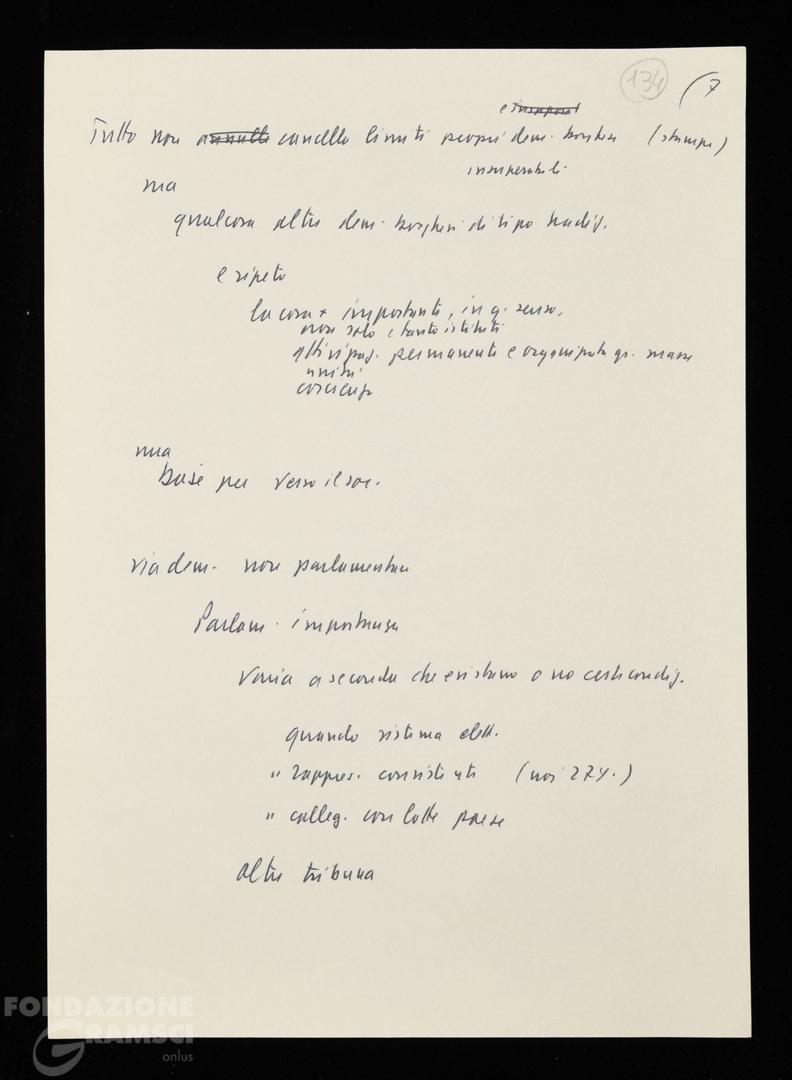 134
(7
e insuppor
Tutto non annulla cancella limiti propri dem. borghese (stampa)
insuperabili
ma
qualcosa altro dem. borghese di tipo tradiz.
e ripeto
la cosa + importante, in q. senso,
non solo e tanto istituti
partecipaz. permanente e organizzata gr. masse
unità
coscienza
ma
base per verso il soc.
via dem. non parlamentare
Parlam. importanza
varia a seconda che esistano o no certe condiz.
quando sistema elett.
" rappres. consistente (noi 27%.)
" colleg. con lotte paese
oltre tribuna
FONDAZIONE
GRAMSCI
onlus